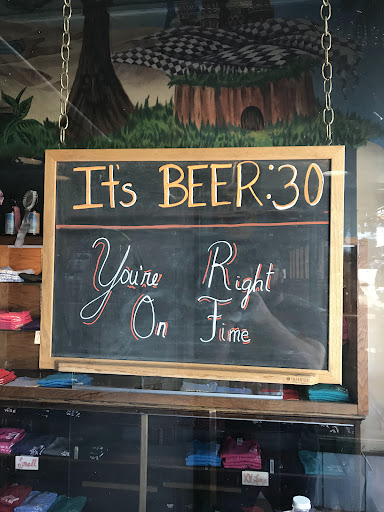 It's BEER:30
You're Right
On Time
Small